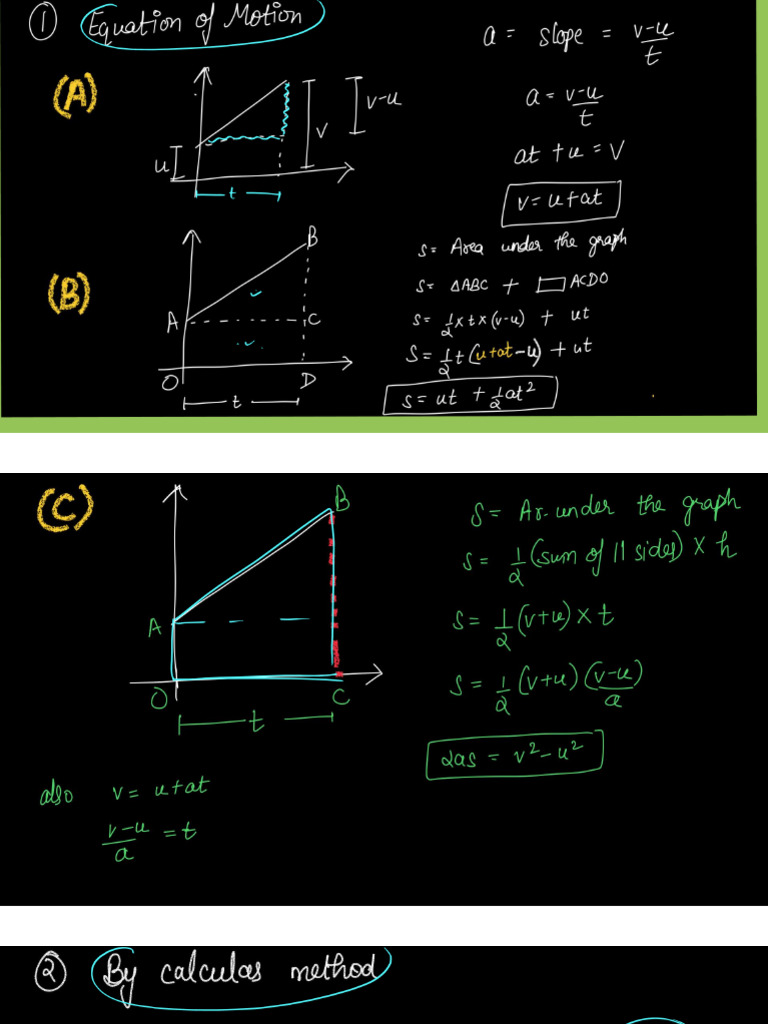 ① Equation of Motion
a = slope = v-u/t
(A)
u
v
v-u
t
a = v-u/t
at + u = v
v = u+at
(B)
A
B
C
O
D
t
S = Area under the graph
S = △ABC + ▭ ACDO
S = 1/2 × t × (v-u) + ut
S = 1/2 t (u+at-u) + ut
S = ut + 1/2 at²
(C)
A
B
O
C
t
S = Ar. under the graph
S = 1/2 (sum of || sides) × h
S = 1/2 (v+u) × t
S = 1/2 (v+u) (v-u)/a
2as = v²-u²
also v = u+at
v-u/a = t
② By calculas method